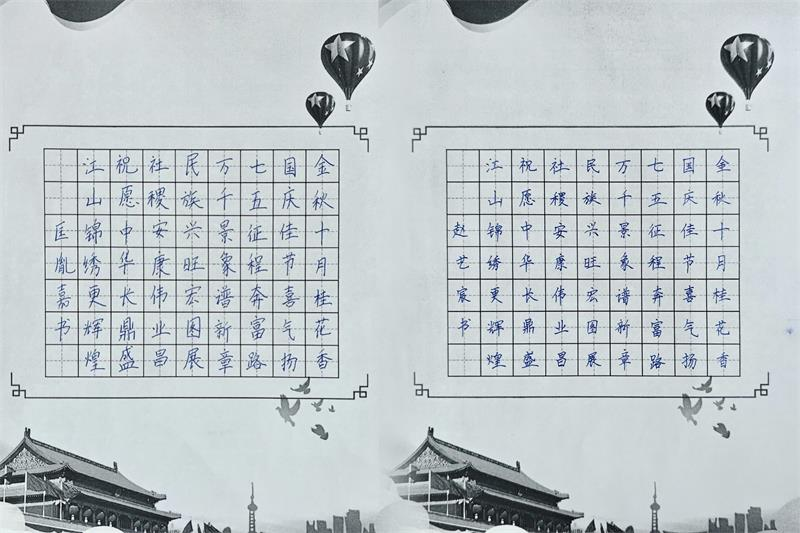 金秋十月桂花香
国庆佳节喜气扬
七五征程奔富路
万千景象谱新章
民族兴旺宏图展
社稷安康伟业昌
祝愿中华长鼎盛
江山锦绣更辉煌
匡胤嘉书
金秋十月桂花香
国庆佳节喜气扬
七五征程奔富路
万千景象谱新章
民族兴旺宏图展
社稷安康伟业昌
祝愿中华长鼎盛
江山锦绣更辉煌
赵艺宸书